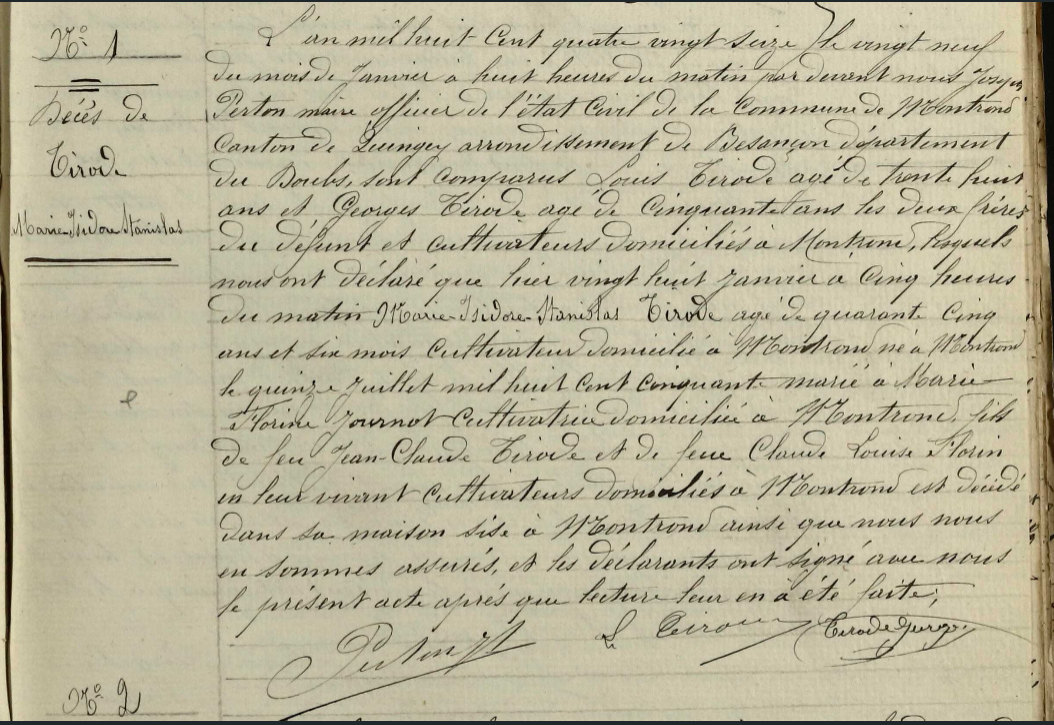 N° 1
Décès de
Tirode
Marie-Isidore Stanislas
L'an mil huit Cent quatre vingt seize le vingt neuf
du mois de Janvier a huit heures du matin par devant nous Joseph
Perton maire officier de l'état Civil de la Commune de Montrond
Canton de Quingey arrondissement de Besançon département
du Doubs, sont comparus Louis Tirode agé de trente huit
ans et Georges Tirode agé de Cinquante ans les deux frères
du défunt et cultivateurs domiciliés à Montrond, lesquels
nous ont déclaré que hier vingt huit Janvier à Cinq heures
du matin Marie-Isidore-Stanislas Tirode agé de quarante Cinq
ans et six mois Cultivateur domicilié à Montrond né à Montrond
le quinze Juillet mil huit Cent cinquante marié à Marie
Florine Journot Cultivatrice domiciliée à Montrond, fils
de feu Jean-Claude Tirode et de feue Claude Louise Florin
en leur vivant Cultivateurs domiciliés à Montrond est décédé
dans sa maison sise à Montrond ainsi que nous nous
en sommes assurés, et les déclarants ont signé avec nous
le présent acte après que lecture leur en à été faite,
Perton Jh L Tirode Tirode Georges
N° 2